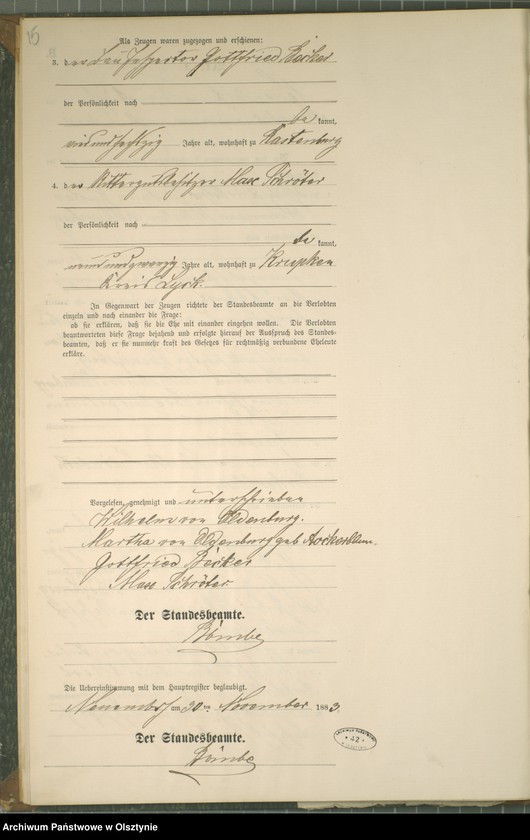 15
Als Zeugen waren zugezogen und erschienen:
3. der Bauinspector Gottfried Becker
der Persönlichkeit nach
be kannt,
Jahre alt, wohnhaft zu Rastenburg
4. der Rittergutsbesitzer Max Schröter
der Persönlichkeit nach
be kannt,
neunundzwanzig Jahre alt, wohnhaft zu Krupken
Kreis Lyck.
In Gegenwart der Zeugen richtete der Standesbeamte an die Verlobten
einzeln und nach einander die Frage:
ob sie erklären, daß sie die Ehe mit einander eingehen wollen. Die Verlobten
beantworteten diese Frage bejahend und erfolgte hierauf der Ausspruch des Standes-
beamten, daß er sie nunmehr kraft des Gesetzes für rechtmäßig verbundene Eheleute
erkläre.
Vorgelesen, genehmigt und unterschrieben
Wilhelm von Oldenburg.
Martha von Oldenburg geb
Gottfried Becker
Max Schröter
Der Standesbeamte.
Die Uebereinstimmung mit dem Hauptregister beglaubigt.
am 30ten November 1883
Der Standesbeamte.
42
Archiwum Państwowe w Olsztynie